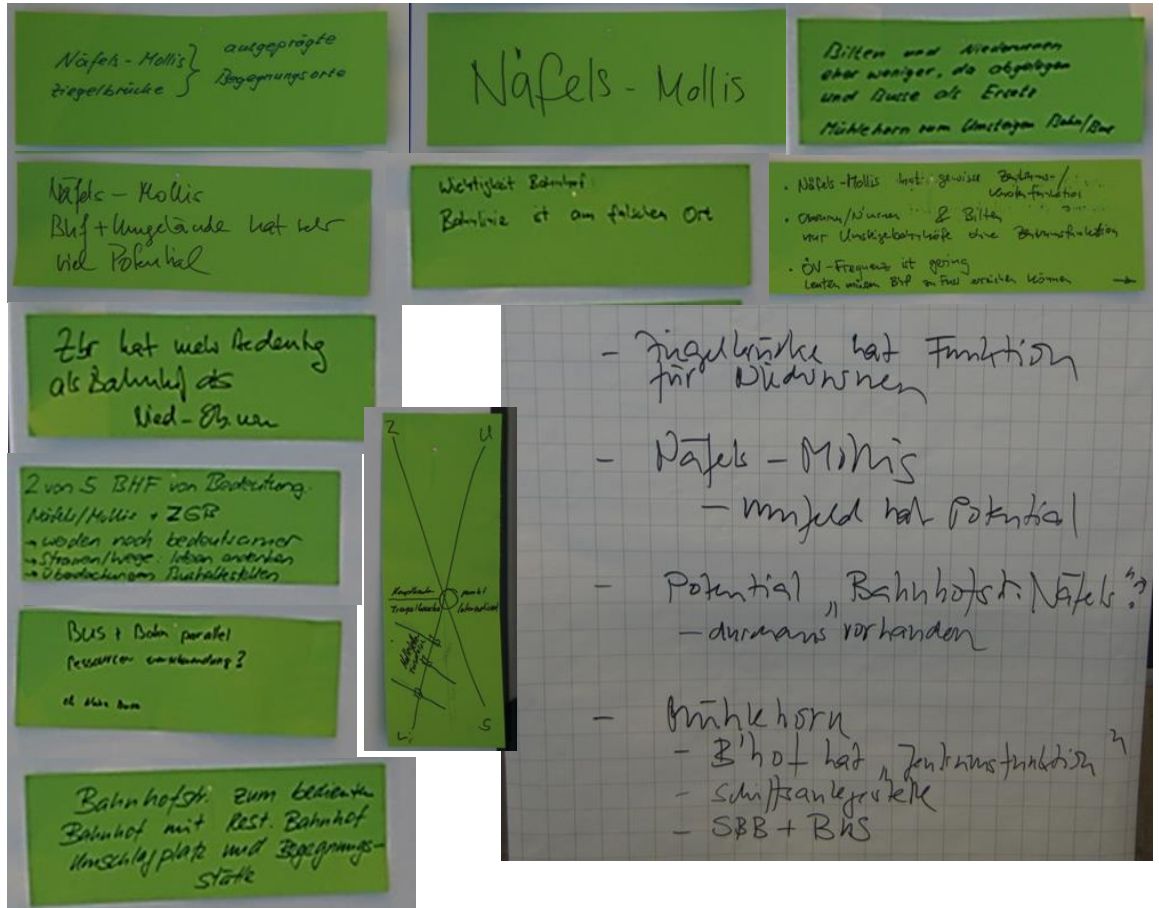 Näfels - Mollis } ausgeprägte
Ziegelbrücke } Begegnungsorte
Näfels - Mollis
Bilten und Niederurnen
eher weniger, da abgelegen
und Busse als Ersatz
Mühlehorn zum Umsteigen Bahn/Bus
Näfels - Mollis
Bhf + Umgelände hat sehr
viel Potential
Wichtigkeit Bahnhof:
Bahnlinie ist am falschen Ort
• Näfels-Mollis hat gewisse Zentrums-/
Knotenfunktion
• & Bilten
nur Umsteigebahnhöfe ohne Zentrumsfunktion
• ÖV-Frequenz ist gering
Leuten müssen Bhf zu Fuss erreichen können →
Zbr hat mehr Bedeutg
als Bahnhof als
Nied-Ob.urn
2 von 5 BHF von Bedeutung.
Näfels/Mollis + ZGB
→ werden noch bedeutsamer
→ Strassen/Wege:
→ Überdachungen Bushaltestellen
BUS + Bahn parallel
Ressourcen verschwendung?
Bahnhofstr. zum bedienten
Bahnhof mit Rest. Bahnhof
Umschlagplatz und Begegnungs-
stätte
Z U
Ziegelbrücke
Li S
- Ziegelbrücke hat Funktion
für Niederurnen
- Näfels - Mollis
- Umfeld hat Potential
- Potential „Bahnhofstr. Näfels"?
- durchaus vorhanden
- Mühlehorn
- B'hof hat „Zentrumsfunktion"
- Schiffsanlegestelle
- SBB + BUS